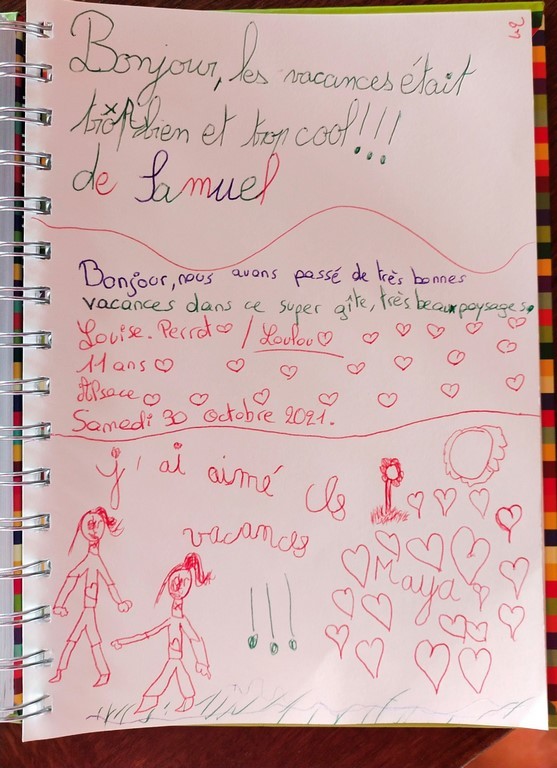 Bonjour, les vacances était
trop bien et trop cool!!!
de Samuel
Bonjour, nous avons passé de très bonnes
vacances dans ce super gîte, très beaux paysages.
Louise. Perrot / Loulou
11 ans
Alsace
Samedi 30 octobre 2021.
j'ai aimé les
vacances
!!!
Maya